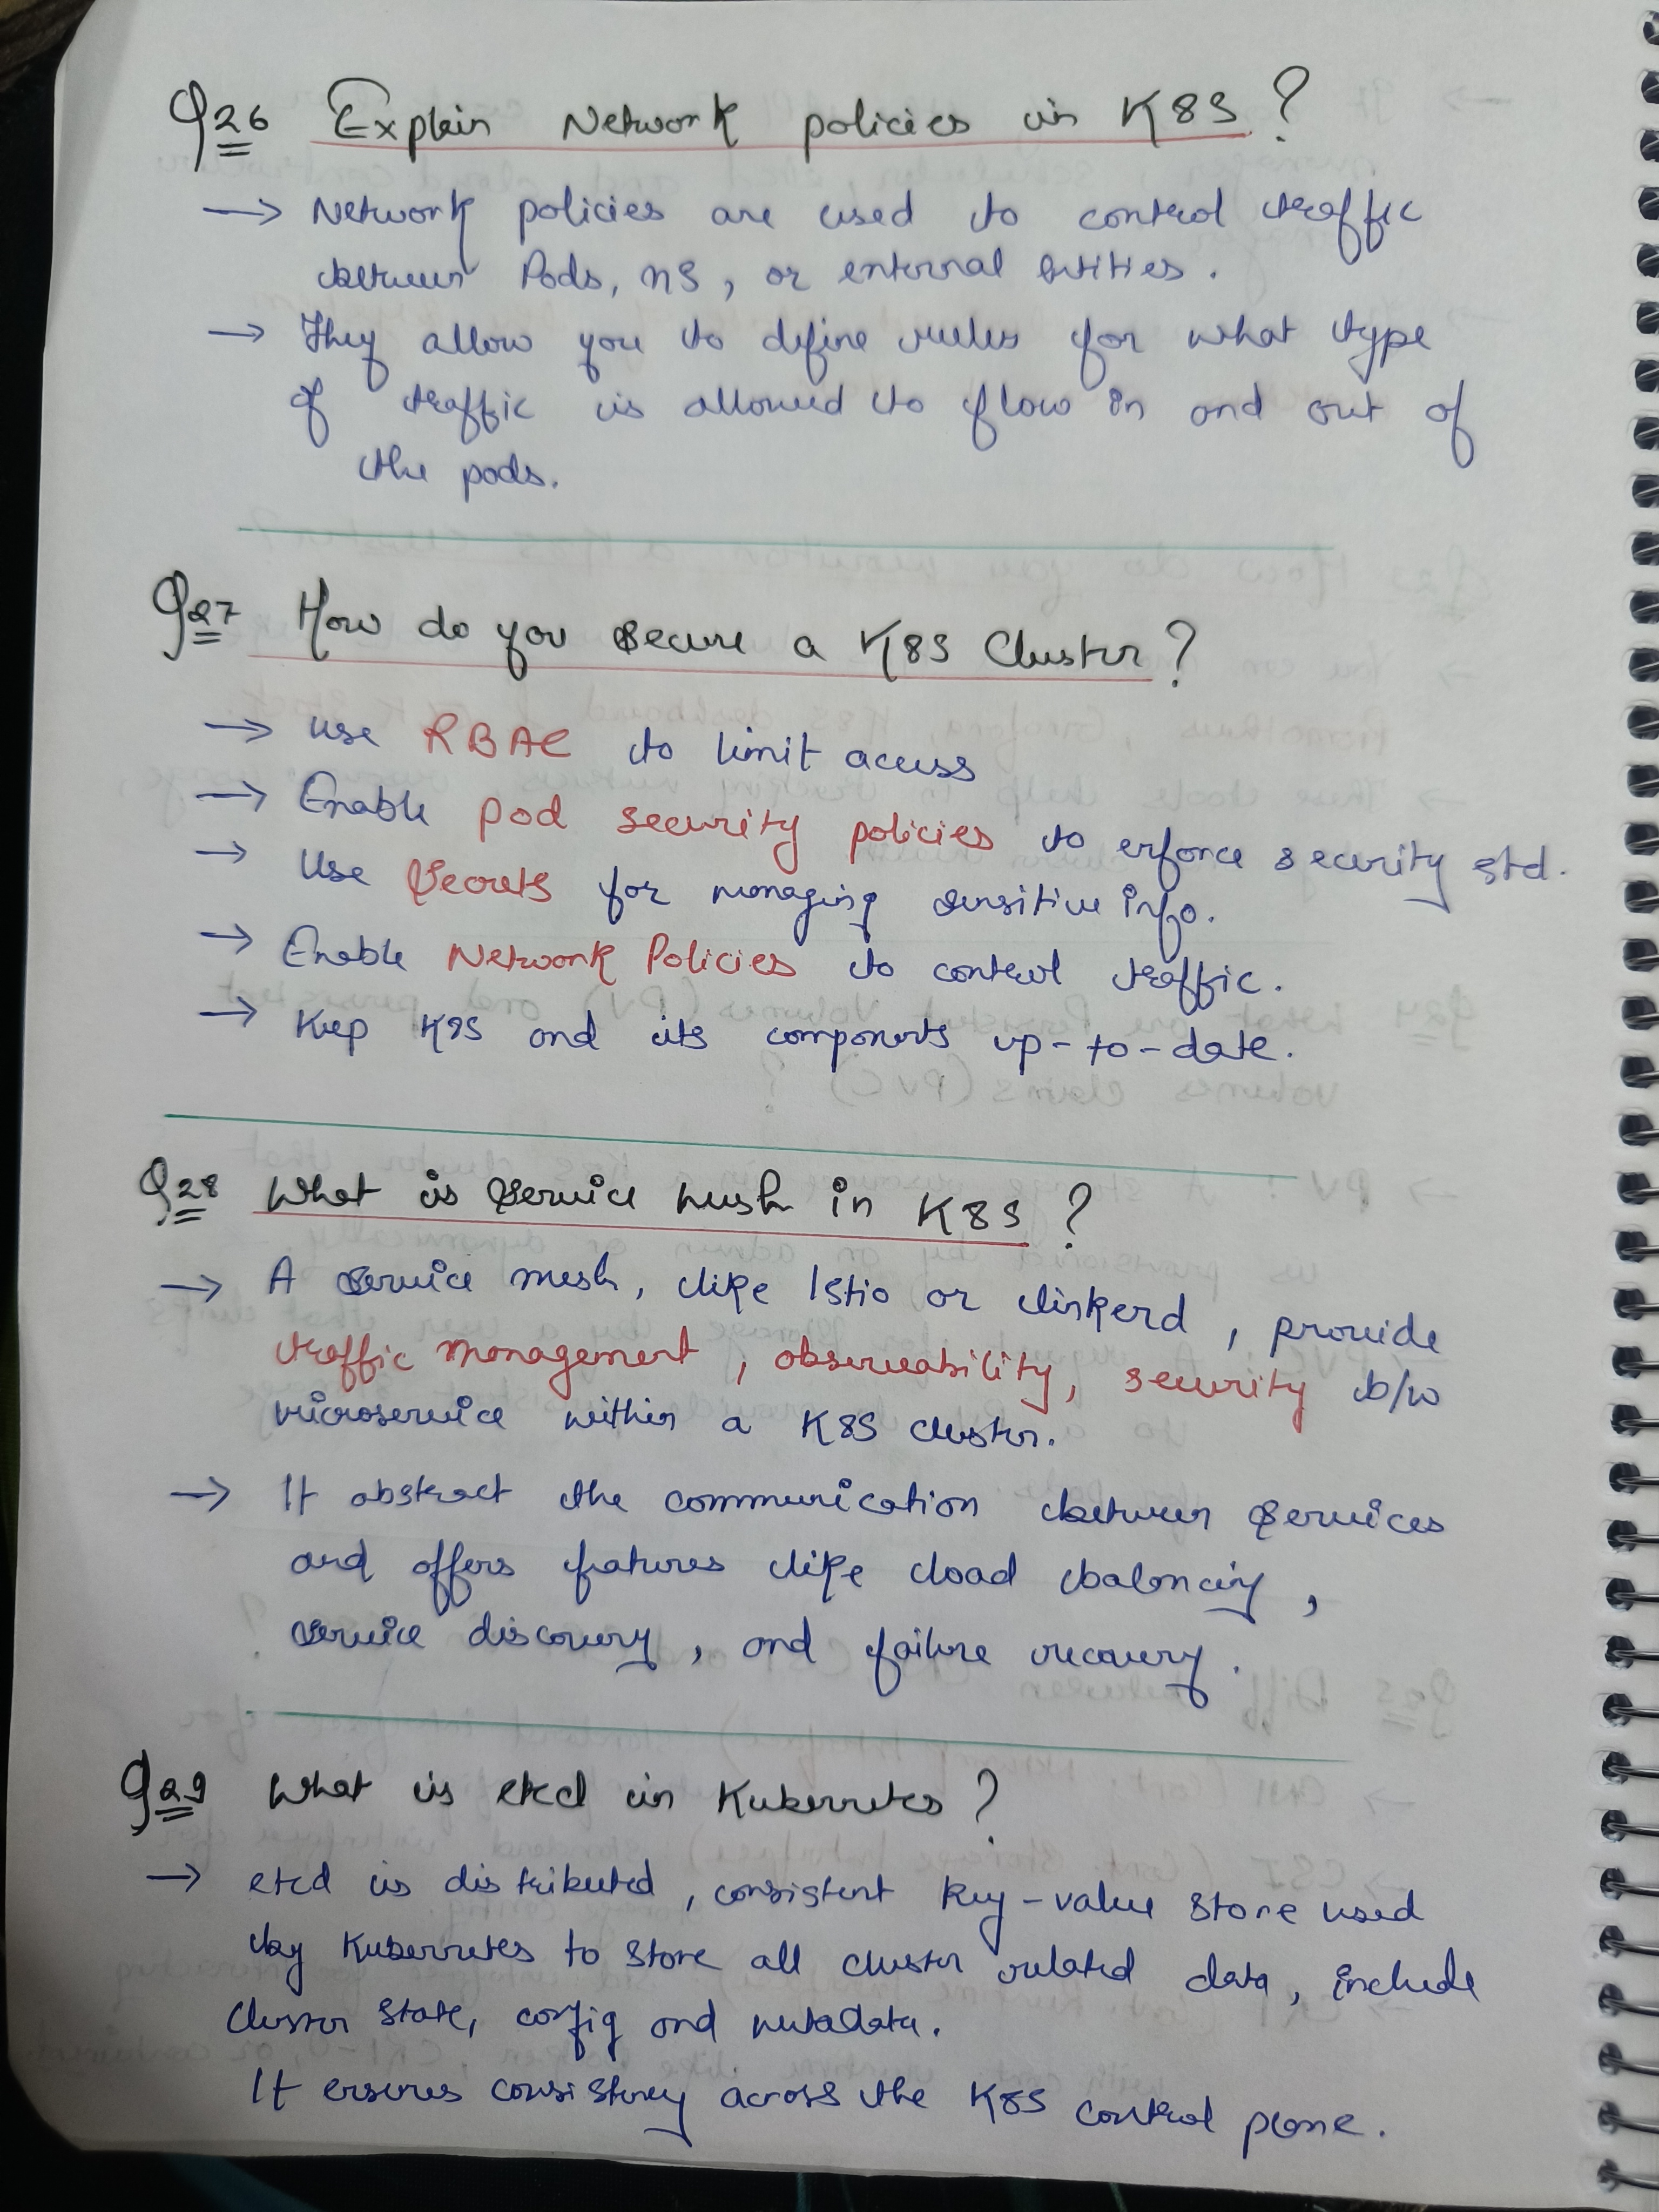 Q26 Explain Network policies in K8S ?
→ Network policies are used to control traffic
between Pods, ns, or external entities.
→ They allow you to define rules for what type
of traffic is allowed to flow in and out of
the pods.
Q27 How do you secure a K8S Cluster ?
→ use RBAC to limit access
→ Enable pod security policies to enforce security std.
→ Use Secrets for managing sensitive info.
→ Enable Network Policies to control traffic.
→ Keep K8S and its components up-to-date.
Q28 What is Service mesh in K8S ?
→ A service mesh, like Istio or linkerd, provide
traffic management, observability, security b/w
microservice within a K8S cluster.
→ It abstract the communication between Services
and offers features like load balancing,
service discovery, and failure recovery.
Q29 What is etcd in Kubernetes ?
→ etcd is distributed, consistent key-value store used
by Kubernetes to store all cluster related data, include
cluster state, config and metadata.
It ensures consistency across the K8S control plane.